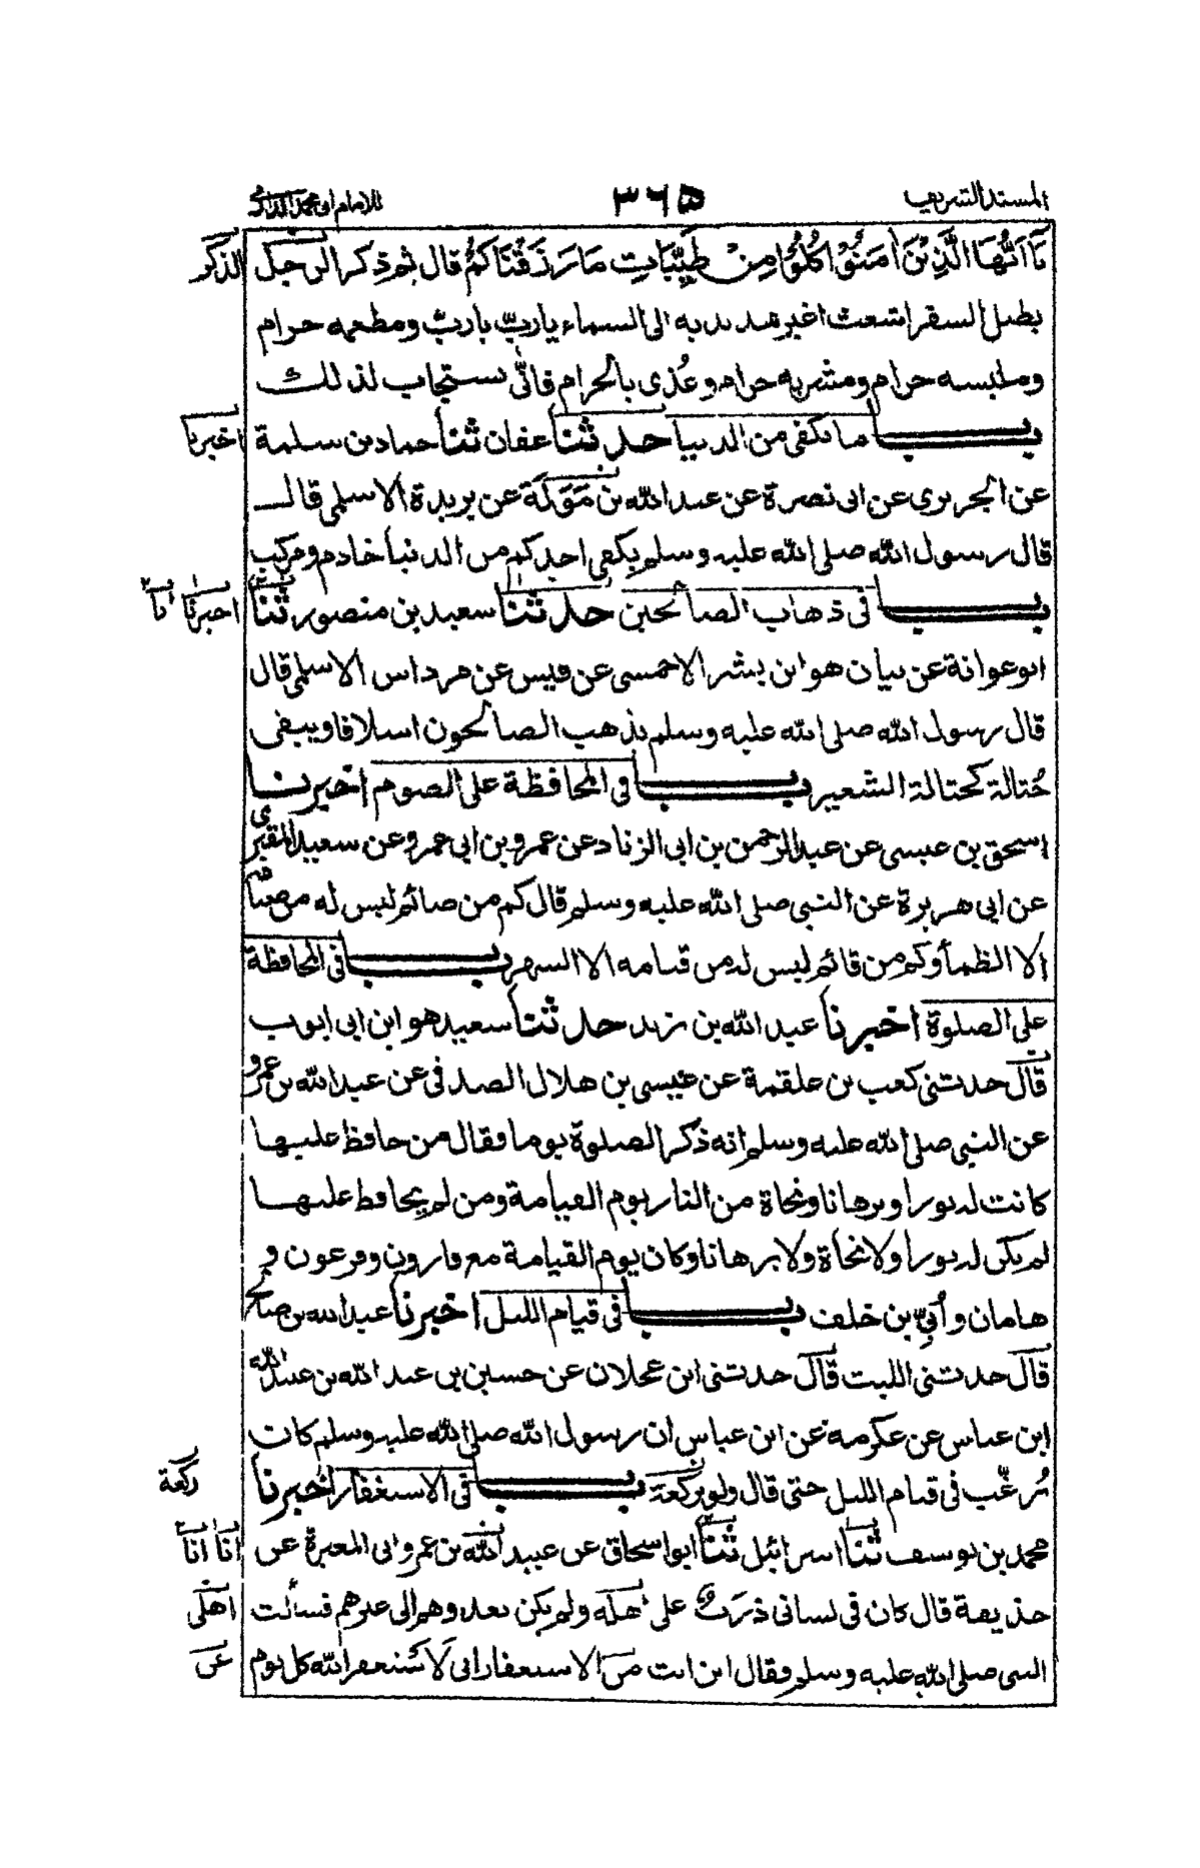 المسند الشريف ٣٦٥ للامام ابى محمد الدارمى
يَا اَيُّهَا الَّذِيْنَ اٰمَنُوْا كُلُوْا مِنْ طَيِّبَاتِ مَا رَزَقْنَاكُمْ قال ثم ذكر الرجل الذكر
يطيل السفر اشعث اغبر يمد يديه الى السماء يا ربّ يا ربّ ومطعمه حرام
وملبسه حرام ومشربه حرام وغُذى بالحرام فانّٰى يستجاب لذلك
بـــاب ما يكفى من الدنيا حدثنا عفان ثنا حماد بن سلمة اخبرنا
عن الجريرى عن ابى نضرة عن عبد الله بن مَوَلَة عن بريدة الاسلمى قال
قال رسول الله صلى الله عليه وسلم يكفى احدكم من الدنيا خادم ومركب
بـــاب فى ذهاب الصالحين حدثنا سعيد بن منصور ثنا اخبرنا انا
ابو عوانة عن بيان هو ابن بشر الاحمسى عن قيس عن مرداس الاسلمى قال
قال رسول الله صلى الله عليه وسلم يذهب الصالحون اسلافا ويبقى
حُثالة كحثالة الشعير بـــاب فى المحافظة على الصوم اخبرنا
اسحق بن عيسى عن عبد الرحمن بن ابى الزناد عن عمرو بن ابى عمرو عن سعيد المقبرى
عن ابى هريرة عن النبى صلى الله عليه وسلم قال كم من صائم ليس له من صيامه
الا الظمأ وكم من قائم ليس له من قيامه الا السهر بـــاب فى المحافظة
على الصلوة اخبرنا عبد الله بن يزيد حدثنا سعيد هو ابن ابى ايوب
قال حدثنى كعب بن علقمة عن عيسى بن هلال الصدفى عن عبد الله بن عمرو
عن النبى صلى الله عليه وسلم انه ذكر الصلوة يوما فقال من حافظ عليها
كانت له نورا وبرهانا ونجاة من النار يوم القيامة ومن لم يحافظ عليها
لم يكن له نورا ولا نجاة ولا برهانا وكان يوم القيامة مع قارون وفرعون و
هامان وأُبىّ بن خلف بـــاب فى قيام الليل اخبرنا عبد الله بن صالح
قال حدثنى الليث قال حدثنى ابن عجلان عن حسين بن عبد الله بن عبيد الله
ابن عباس عن عكرمة عن ابن عباس ان رسول الله صلى الله عليه وسلم كان
يُرغّب فى قيام الليل حتى قال ولو بركعة بـــاب فى الاستغفار اخبرنا ركعة
محمد بن يوسف ثنا اسرائيل ثنا ابو اسحاق عن عبيد الله بن عمرو ابى المغيرة عن انا انا
حذيفة قال كان فى لسانى ذرَبٌ على اهله ولم يكن يعدوهم الى غيرهم فسألت اهلى
النبى صلى الله عليه وسلم فقال اين انت من الاستغفار انى لَاَسْتغفر الله كل يوم عن